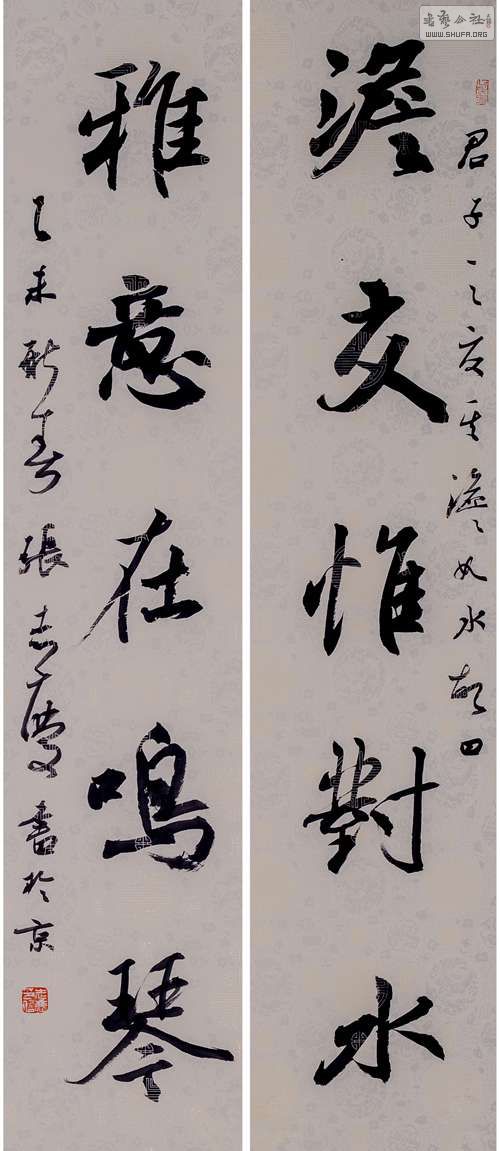 澹友惟對水
雅意在鳴琴
君子之交其澹如水故曰
乙未新春張志慶書於京
書艺公社
WWW.SHUFA.ORG